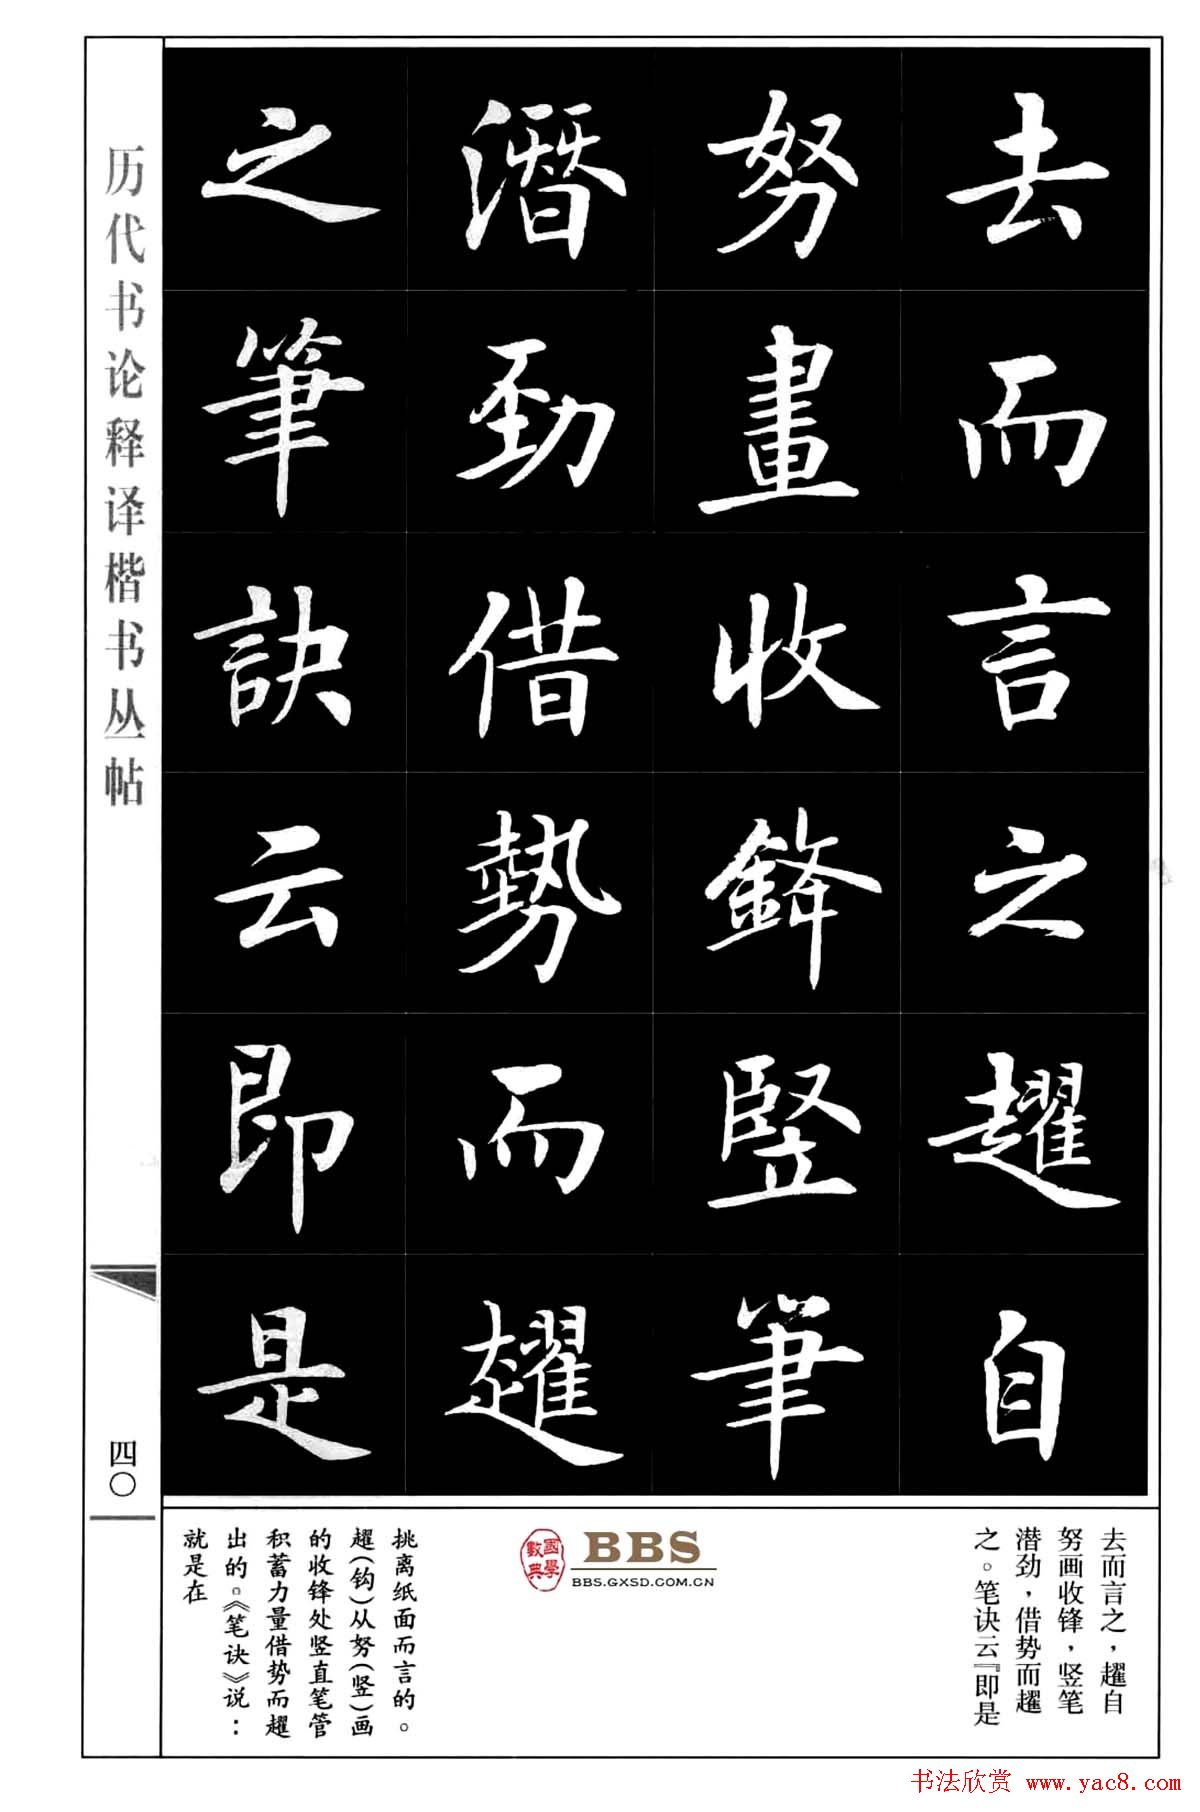 去而言之趯自
努畫收鋒竖筆
潛勁借勢而趯
之筆訣云即是
历代书论释译楷书丛帖
四〇
去而言之，趯自
努画收锋，竖笔
潜劲，借势而趯
之。笔诀云『即是
國學數典
BBS
BBS.GXSD.COM.CN
挑离纸面而言的。
趯(钩)从努(竖)画
的收锋处竖直笔管
积蓄力量借势而趯
出的。《笔诀》说：
就是在
书法欣赏 www.yac8.com